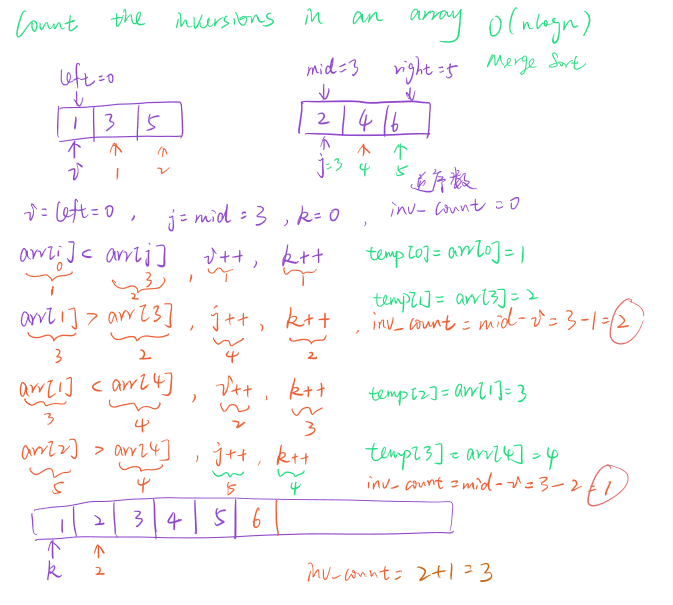 Count the inversions in an array O(nlogn)
Merge Sort
left=0 mid=3 right=5
1 3 5 2 4 6
i 1 2 j=3 4 5
逆序数
i=left=0, j=mid=3, k=0, inv_count=0
arr[i]<arr[j], i++, k++ temp[0]=arr[0]=1
0 3
1 2 1 1
temp[1]=arr[3]=2
arr[1]>arr[3], j++, k++, inv_count=mid-i=3-1=2
3 2 4 2
arr[1]<arr[4], i++, k++ temp[2]=arr[1]=3
3 4 2 3
arr[2]>arr[4], j++, k++ temp[3]=arr[4]=4
5 4 5 4 inv_count=mid-i=3-2=1
1 2 3 4 5 6
k 2
inv_count=2+1=3